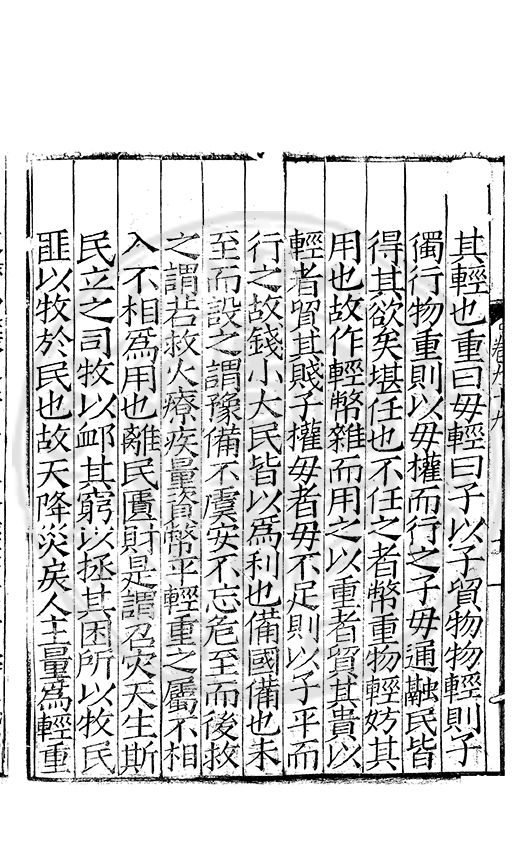 其輕也重曰毋輕曰子以子貿物物輕則子
獨行物重則以毋權而行之子毋通融民皆
得其欲矣堪任也不任之者幣重物輕妨其
用也故作輕幣雜而用之以重者貿其貴以
輕者貿其賤子權毋者毋不足則以子平而
行之故錢小大民皆以為利也備國備也未
至而設之謂豫備不虞安不忘危至而後救
之謂若救火療疾量資幣平輕重之屬不相
入不相為用也離民匱財是謂召灾天生斯
民立之司牧以䘏其窮以拯其困所以牧民
匪以牧於民也故天降灾戾人主量為輕重